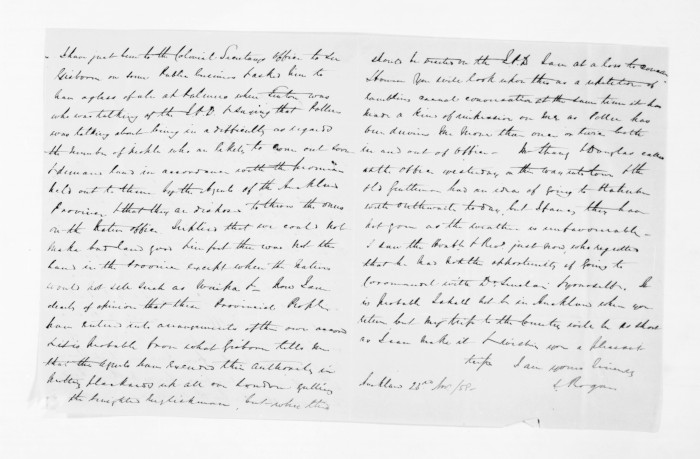 I have just been to the Colonial Secretarys Office to see
Gisborn on some Public business & asked him to
have a glass of ale at Palmers when
who was talking of the & saying that Potter
was talking about being in a difficulty as regards
the number of People who are likely to come out here
& demand land in accordance with the promises
held out to them by the Agents of the Auckland
Province & that they are disposed to throw the onus
on the Native Office I replied that we could not
make bad land good in fact there was not the
land in the Province except where the Natives
would not sell such as Waipa & now I am
clearly of opinion that these Provincial People
have entered into arrangements of their own accord
& it is probable from what Gisborn tells me
that the Agents have exceeded their authority in
putting plackards up all over London gulling
the benighted Englishman, but why this
should be directed on the I am at a loss to
However you will look upon this as a repetition of
rambling casual conversation at the same time it has
made a kind of impression on me as Potter has
been me more than once or twice both
in and out of office - Mr & Douglas called
at the office yesterday on the way into town & the
old Gentleman had an idea of going to
with Outhwaite to day, but I fancy they have
not gone as the weather is unfavourable -
I saw the just now, who regretted
that he had not the opportunity of going to
Coromandel with Dr Sinclair & yourself. It
is probable I shall not be in Auckland when you
return but my trip to the Country will be as short
as I can make it & wishing you a pleasant
trip I am yours sincerely
Auckland 23rd /58 Rogan